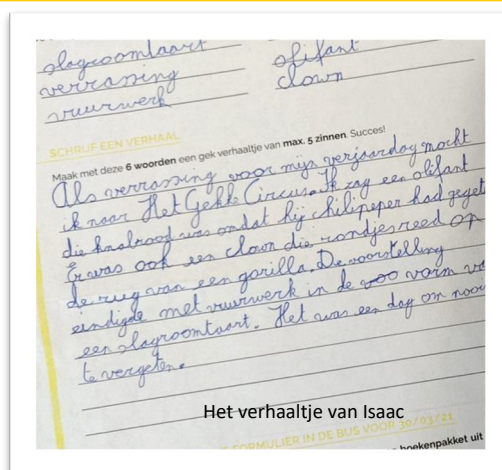 slagroomtaart olifant
verrassing clown
vuurwerk
SCHRIJF EEN VERHAAL
Maak met deze 6 woorden een gek verhaaltje van max. 5 zinnen. Succes!
Als verrassing voor mijn verjaardag mocht
ik naar Het Gekke Circus. Ik zag een olifant
die knalrood was omdat hij chilipeper had gegete
Er was ook een clown die rondjes reed op
de rug van een gorilla. De voorstelling
eindigde met vuurwerk in de voo vorm va
een slagroomtaart. Het was een dag om nooi
te vergeten.
Het verhaaltje van Isaac
FORMULIER IN DE BUS VOOR 30/03/21
boekenpakket uit